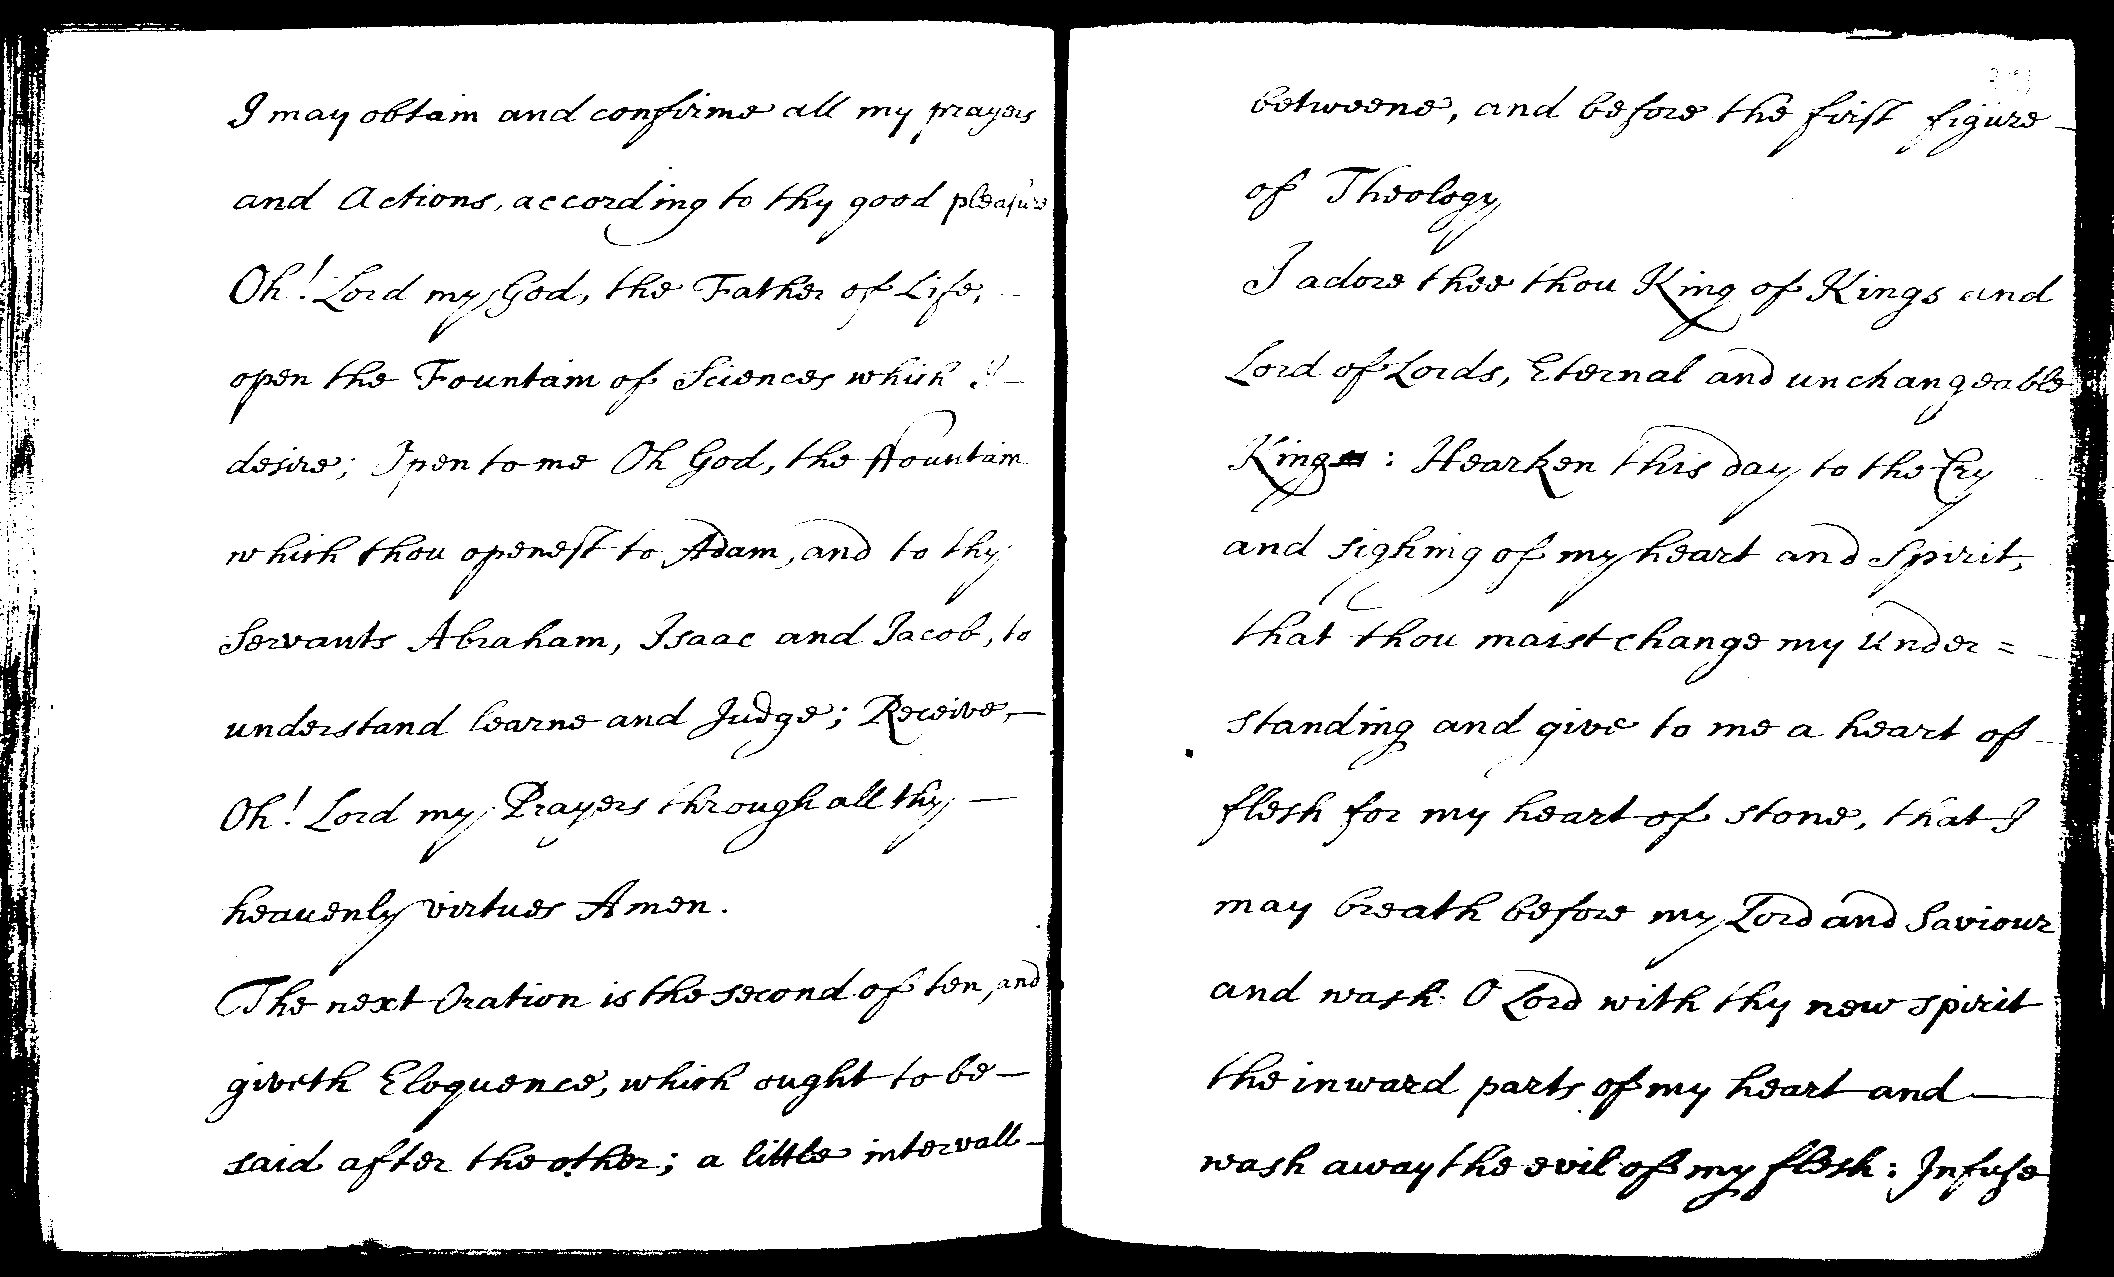 I may obtain and confirme all my prayers
and Actions, according to thy good pleasure
Oh! Lord my God, the Father of Life,
open the Fountain of Sciences which I
desire; Open to me Oh God, the ffountain
which thou openest to Adam, and to thy
Servants Abraham, Isaac and Jacob, to
understand learne and Judge; Receive,
Oh! Lord my Prayers through all thy
heavenly virtues Amen.
The next Oration is the second of ten, and
giveth Eloquence, which ought to be
said after the other; a little intervall
betweene, and before the first figure
of Theology
I adore thee thou King of Kings and
Lord of Lords, Eternal and unchangeable
King : Hearken this day to the Cry
and sighing of my heart and Spirit,
that thou maist change my Under =
standing and give to me a heart of
flesh for my heart of stone, that I
may breath before my Lord and Saviour
and wash O Lord with thy new spirit
the inward parts of my heart and
wash away the evil of my flesh : Infuse